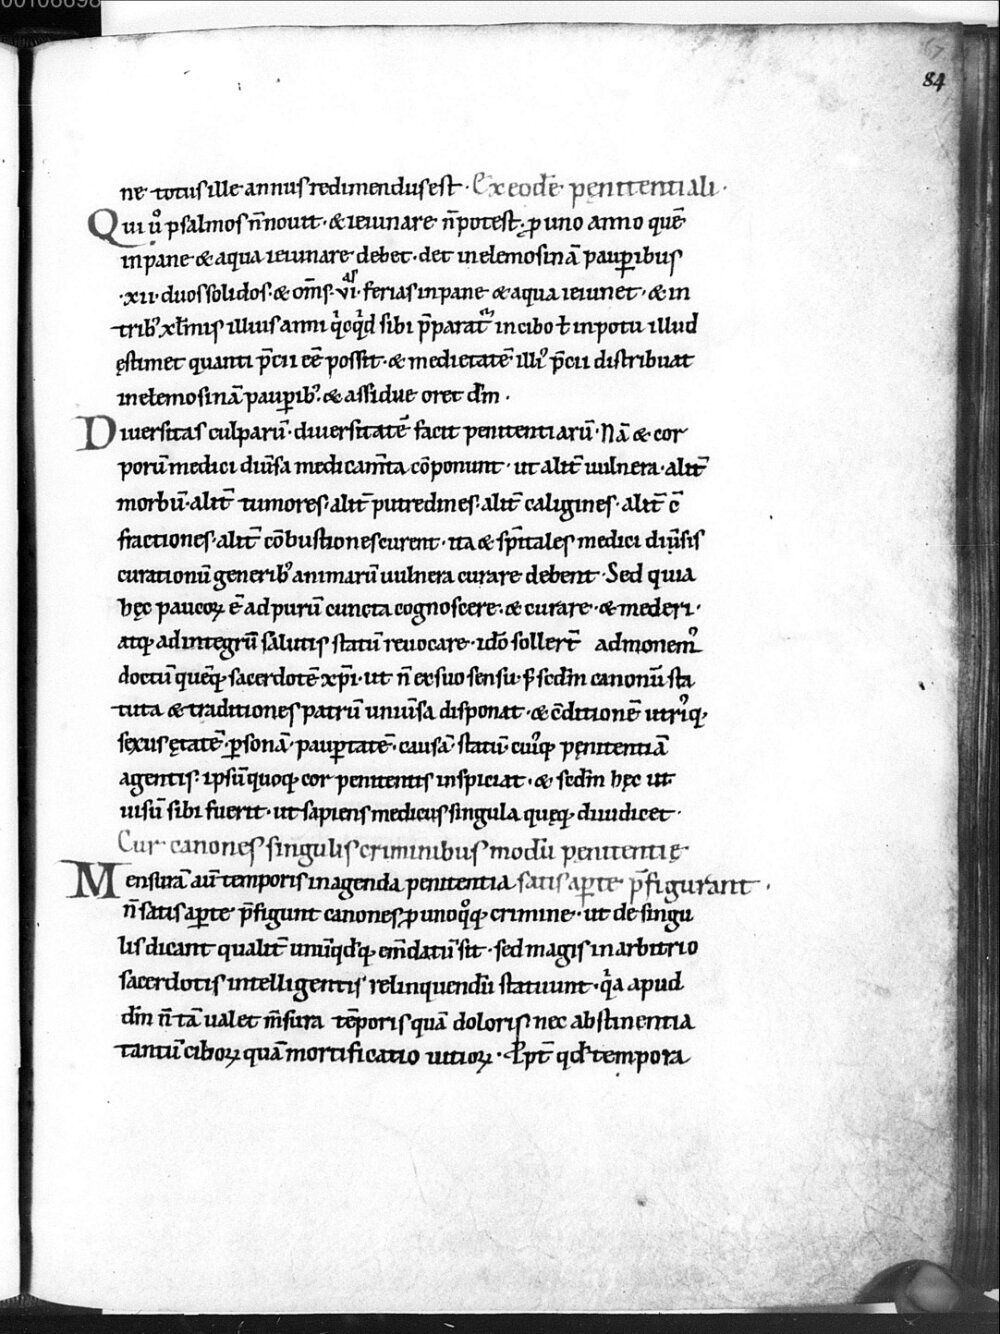 00106698
67
84
ne totus ille annus redimendus est · Ex eodē pęnitentiali ·
Qui ů psalmos n̄ nouit · & ieiunare n̄ potest · ꝓ uno anno quē
in pane & aqua ieiunare debet · det in elemosinā paup̄ibus
·xii· duos solidos · & om̄s · vi · ferias in pane & aqua ieiunet · & in
trib᾽ xl̄mis illius anni q̇cq̇d sibi p̄parat᾽ in cibo ł in potu illud
ęstimet quanti p̄cii eē possit · & medietatē illi᾽ p̄cii distribuat
in elemosinā paup̄ib᾽ · & assidue oret dm̄ ·
Diuersitas culparū · diuersitatē facit penitentiarū · Nā & cor
porū medici diūsa medicam̄ta cōponunt · ut alit̄ uulnera · alit̄
morbū · alit̄ tumores · alit̄ putredines · alit̄ caligines · alit̄ c̄
fractiones · alit̄ cōbustiones curent · ita & sp̄itales medici diūsis
curationū generib᾽ animarū uulnera curare debent · Sed quia
hęc paucoꝝ ē ad purū cuncta cognoscere · & curare · & mederi ·
atq; ad integrū salutis statū reuocare · idō sollert̄ admonem᾽
doctū quēq; sacerdotē xp̄i · ut n̄ ex suo sensu · s̄ sedm̄ canonū sta
tuta & traditiones patrū uniūsa disponat · & c̄ditionē utri᾽q;
sexus ętatē · ꝑsonā · pauꝑtatē · causā · statū cui᾽q; pęnitentiā
agentis · ipsū quoq; cor penitentis inspiciat · & sedm̄ hęc ut
uisū sibi fuerit · ut sapiens medicus singula quęq; diiudicet ·
Cur canones singulis criminibus modū penitentię
Mensurā aū temporis in agenda penitentia satis aꝑte p̄figurant ·
n̄ satis aꝑte p̄figunt canones ꝓ unoq̊q; crimine · ut de singu
lis dicant qualit̄ unūq̇dq; em̄datū sit · sed magis in arbitrio
sacerdotis intelligentis relinquendū statuunt · q̇a apud
dm̄ n̄ tā ualet m̄sura tēporis quā doloris nec abstinentia
tantū ciboꝝ quā mortificatio uitioꝝ · Ꝓpt̄ qđ tempora